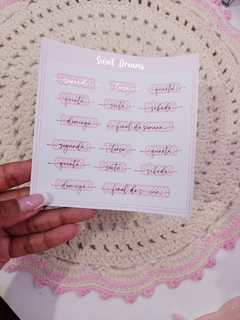 Sweet Dreams
segunda terça quarta
quinta sexta sábado
domingo final de semana
segunda terça quarta
quinta sexta sábado
domingo final de semana